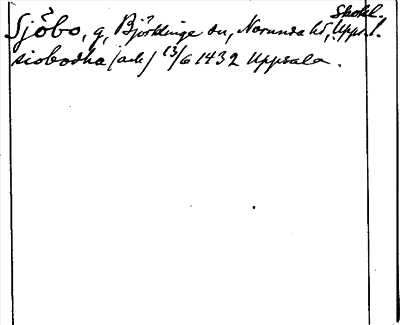 Skokl.
Sjöbo, g, Björklinge sn, Norunda hd, Uppl.
siobodha (ack) 13/6 1432 Uppsala.